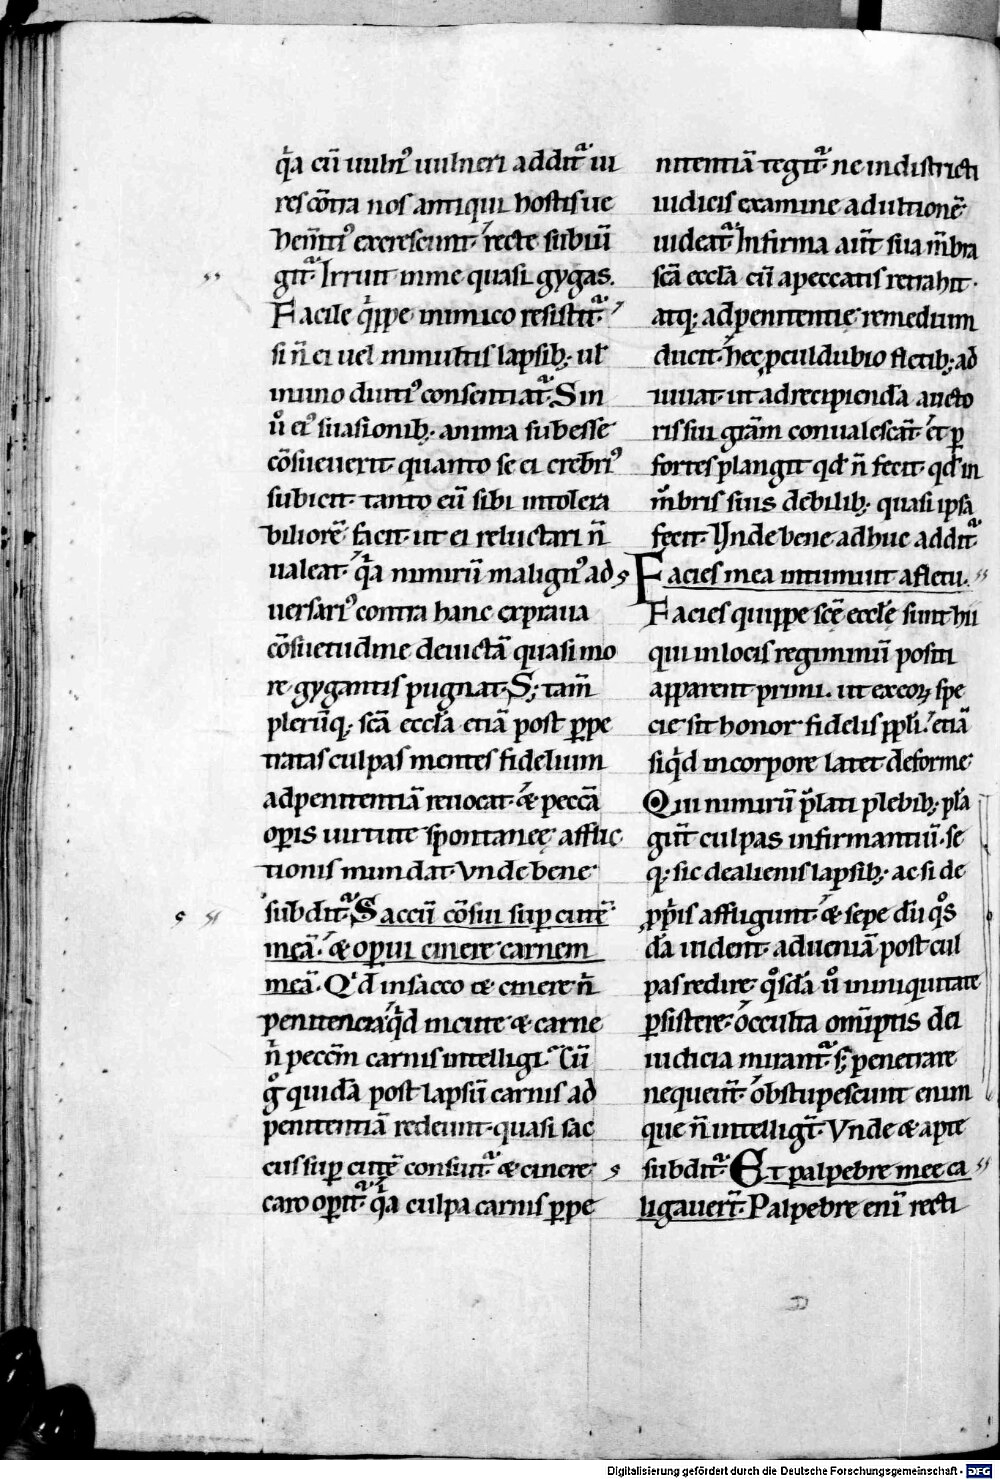 q̓a cū uuln᷒ uulneri addit᷑ ui
res cōtra nos antiqui hostis ue
hem̄ti᷒ excrescunt· recte subiū
git᷑· Irruit in me quasi gygas.
Facile q̓ppe inimico resistit᷑·
si n̄ ei uel in multis lapsib; ul̓
in uno diuti᷒ consentiat᷑· Sin
ů ei᷒ suasionib; anima subesse
cōsueuerit· quanto se ei crebri᷒
subicit· tanto eū sibi intolera
biliorē facit· ut ei reluctari n̄
ualeat· q̓a nimirū malign᷒ ad
uersari᷒ contra hanc ex praua
cōsuetudine deuictā quasi mo
re gygantis pugnat· S; tam̄
plerūq; scā eccła etiā post ꝑpe
tratas culpas mentes fidelium
ad penitentiā reuocat· & peccā
oꝑis uirtute spontaneę afflic
tionis mundat· Vnde bene
subdit᷑· Saccū cōsui suꝑ cutē
meā· & oꝑui cinere carnem
meā· Q'd in sacco & cinere n̄
penitencia· q̓d in cute & carne
n̄ pecc̄m carnis intelligi᷑· Cū
g̊ quidā post lapsū carnis ad
penitentiā redeunt· quasi sac
cus suꝑ cutē consuit᷑· & cinere
caro oꝑit᷑· q̓a culpa carnis ꝑ pe
nitentiā tegit᷑· ne in districti
iudicis examine ad ultionē
uideat᷑· Infirma aut̄ sua m̄bra
scā eccła cū a peccatis retrahit·
atq; ad penitentię remedium
ducit· hec ꝓculdubio fletib; ad
iuuat· ut ad recipienda aucto
ris sui grām conualescāt· et ꝑ
fortes plangit qd̄ n̄ fecit· qd̄ in
m̄bris suis debilib; quasi ipsa
fecit· Unde bene adhuc addit᷑
Facies mea intumuit a fletu.
Facies quippe scē ecclę sunt hii
qui in locis regiminū positi
apparent primi. ut ex eoꝝ spe
cie sit honor fidelis ppłi· etiā
siq̓d in corpore latet deforme·
Qui nimirū p̄lati plebib; plā
gūt culpas infirmantiū· se
q; sic de alienis lapsib; ac si de
ꝓpriis affligunt· & sepe dū q̊s
dā uident· ad ueniā post cul
pas redire· q̊sdā ů in iniquitate
ꝑsistere· occulta om̄iptis dei
iudicia mirant᷑· s; penetrare
nequeūt· obstupescunt enim
que n̄ intelligūt· Vnde & apte
subdit᷑· Et palpebre mee ca
ligauer̄t· Palpebre enī recti